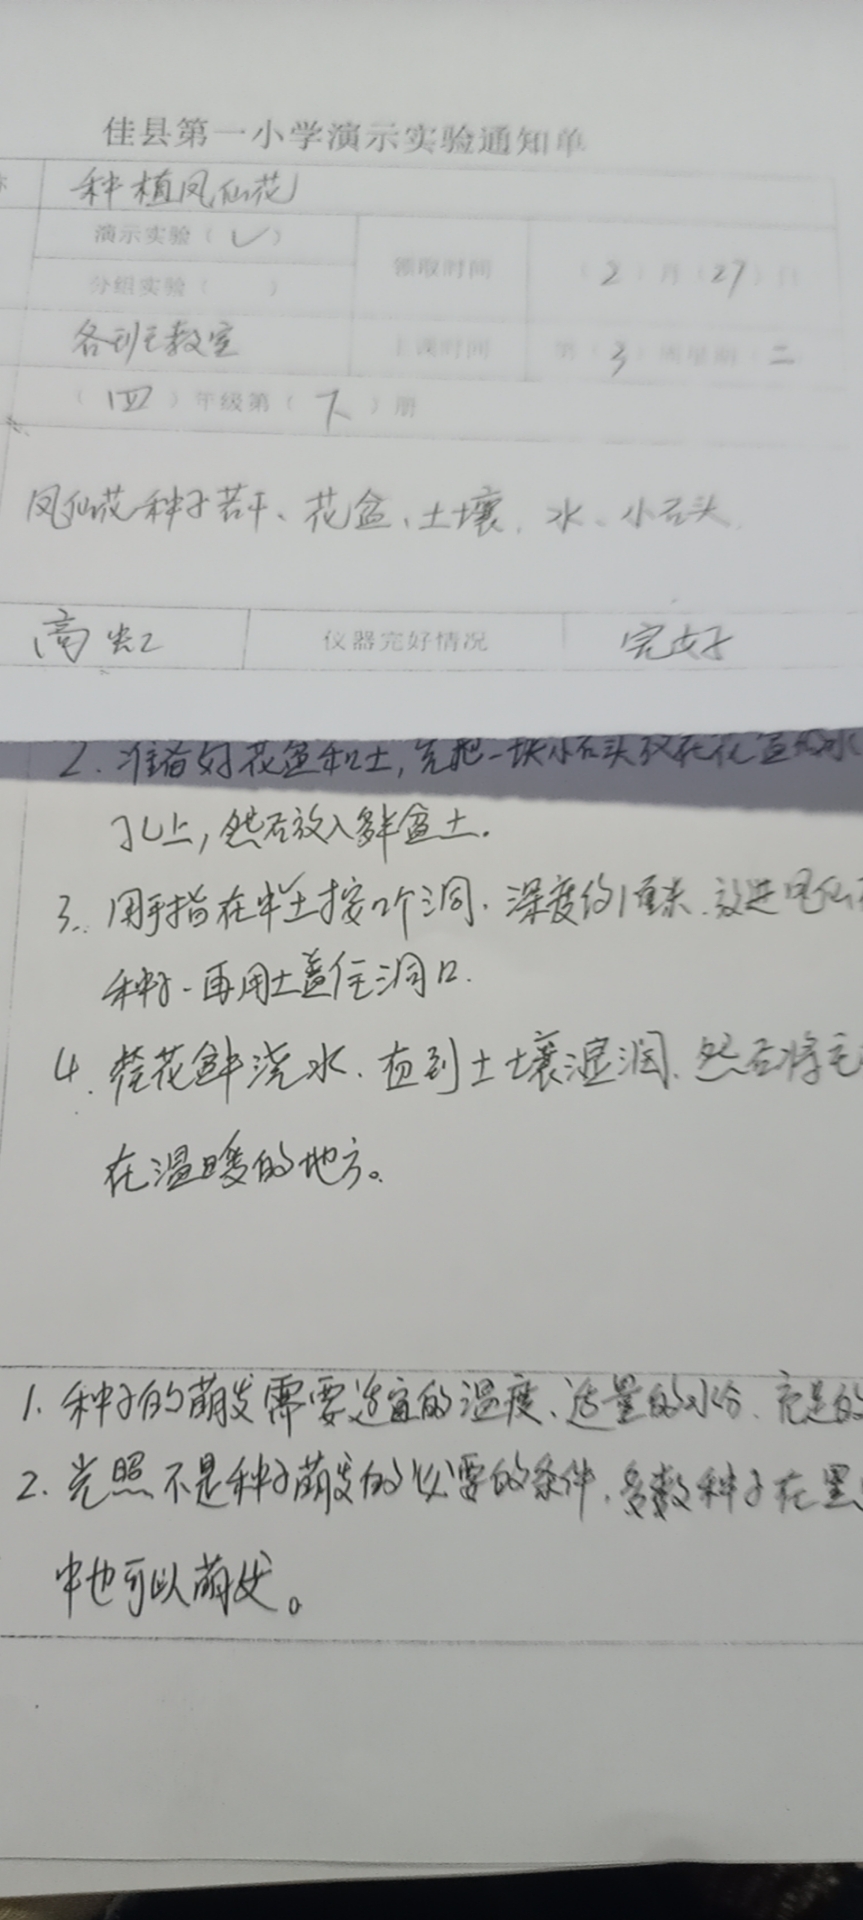 佳县第一小学演示实验通知单
种植凤仙花
演示实验（✓）
领取时间 （2）月（27）日
分组实验（ ）
各班教室 上课时间 第（3）周星期（二
（四）年级第（下）册
凤仙花种子若干、花盆、土壤、水、小石头
高虹 仪器完好情况 完好
2. 准备好花盆和土，先把一块小石头放在花盆的水
孔上，然后放入多半盆土。
3. 用手指在土按个洞，深度约1厘米，放进凤仙花
种子，再用土盖住洞口.
4. 花盆浇水，直到土壤湿润，然后将它
在温暖的地方。
1. 种子的萌发需要适宜的温度、适量的水分、充足的
2. 光照不是种子萌发的必要的条件，多数种子在黑
中也可以萌发。